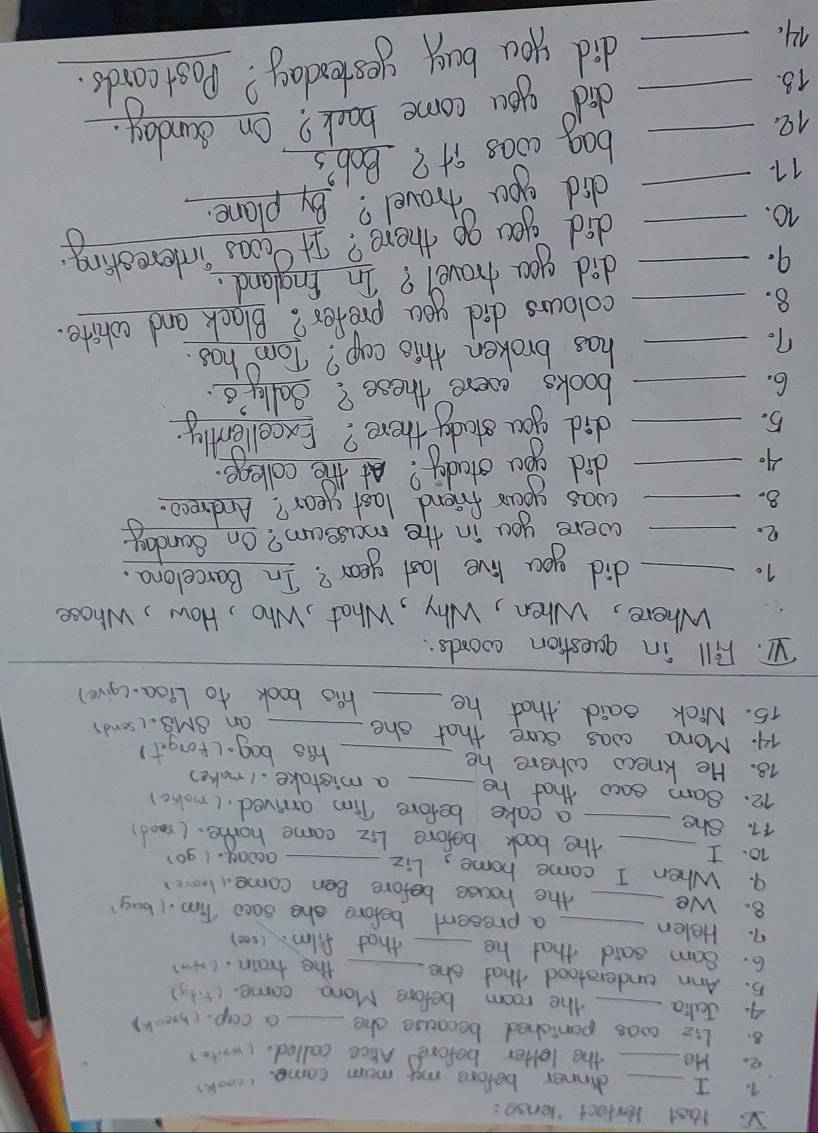 V. Past Perfect Tense:
1. I ____ dinner before my mum came. (cook)
2. He ____ the letter before Alice called. (write)
3. Liz was punished because she ____ a cup. (break)
4. Julia ____ the room before Mona came. (tidy)
5. Ann understood that she ____ the train.
6. Sam said that he ____ that film. (see)
7. Helen ____ a present before she saw Tim. (buy)
8. We ____ the house before Ben came. (leave)
9. When I came home, Liz ____ away. (go)
10. I ____ the book before Liz came home. (read)
11. She ____ a cake before Tim arrived. (make)
12. Sam saw that he ____ a mistake. (make)
13. He knew where he ____ his bag. (forget)
14. Mona was sure that she ____ an SMS. (send)
15. Nick said that he ____ his book to Lisa. (give)
VI. Fill in question words:
Where, When, Why, What, Who, How, Whose
1. ____ did you live last year? In Barcelona.
2. ____ were you in the museum? On Sunday
3. ____ was your friend last year? Andrew.
4. ____ did you study? At the college.
5. ____ did you study there? Excellently.
6. ____ books were these? Sally's.
7. ____ has broken this cup? Tom has.
8. ____ colours did you prefer? Black and white.
9. ____ did you travel? In England.
10. ____ did you go there? It was interesting.
11. ____ did you travel? By plane.
12. ____ bag was it? Bob's
13. ____ did you come back? On Sunday.
14. ____ did you buy yesterday? Postcards.